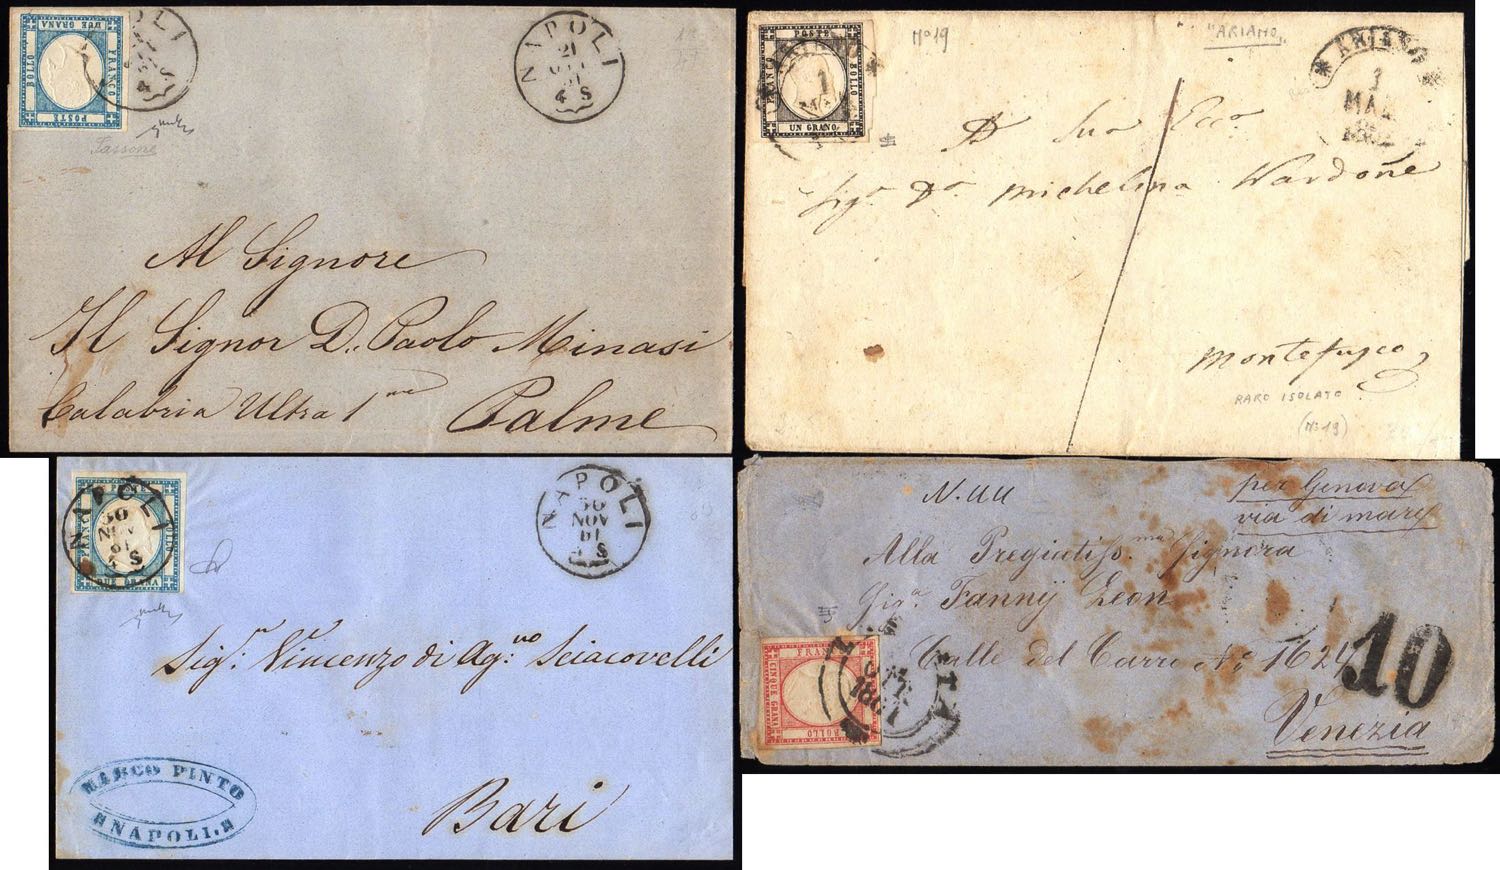 DUE GRANA
FRANCO
BOLLO
POSTE
NAPOLI
4 S
NAPOLI
21
4 S
Tassone
Al Signore
Il Signor D. Paolo Minasi
Calabria Ultra 1
Palme
POSTE
FRANCO
BOLLO
UN GRANO
1
N° 19
"ARIANO"
ARIANO
1
MAR
A Sua Ecca
Sigra Da Michelina Wardoñe
Montefusco
RARO ISOLATO
(N° 19)
FRANCO
BOLLO
DUE GRANA
NAPOLI
30
NOV
61
4 S
NAPOLI
30
NOV
61
4 S
Sigr. Vincenzo di Agno Sciacovelli
Bari
MARCO PINTO
NAPOLI.
per Genova
via di mare
Alla Pregiatiss.ma Signora
Giga Fanny Leon
Calle del Carro No 1624
Venezia
10
CINQUE GRANA
BOLLO
1861